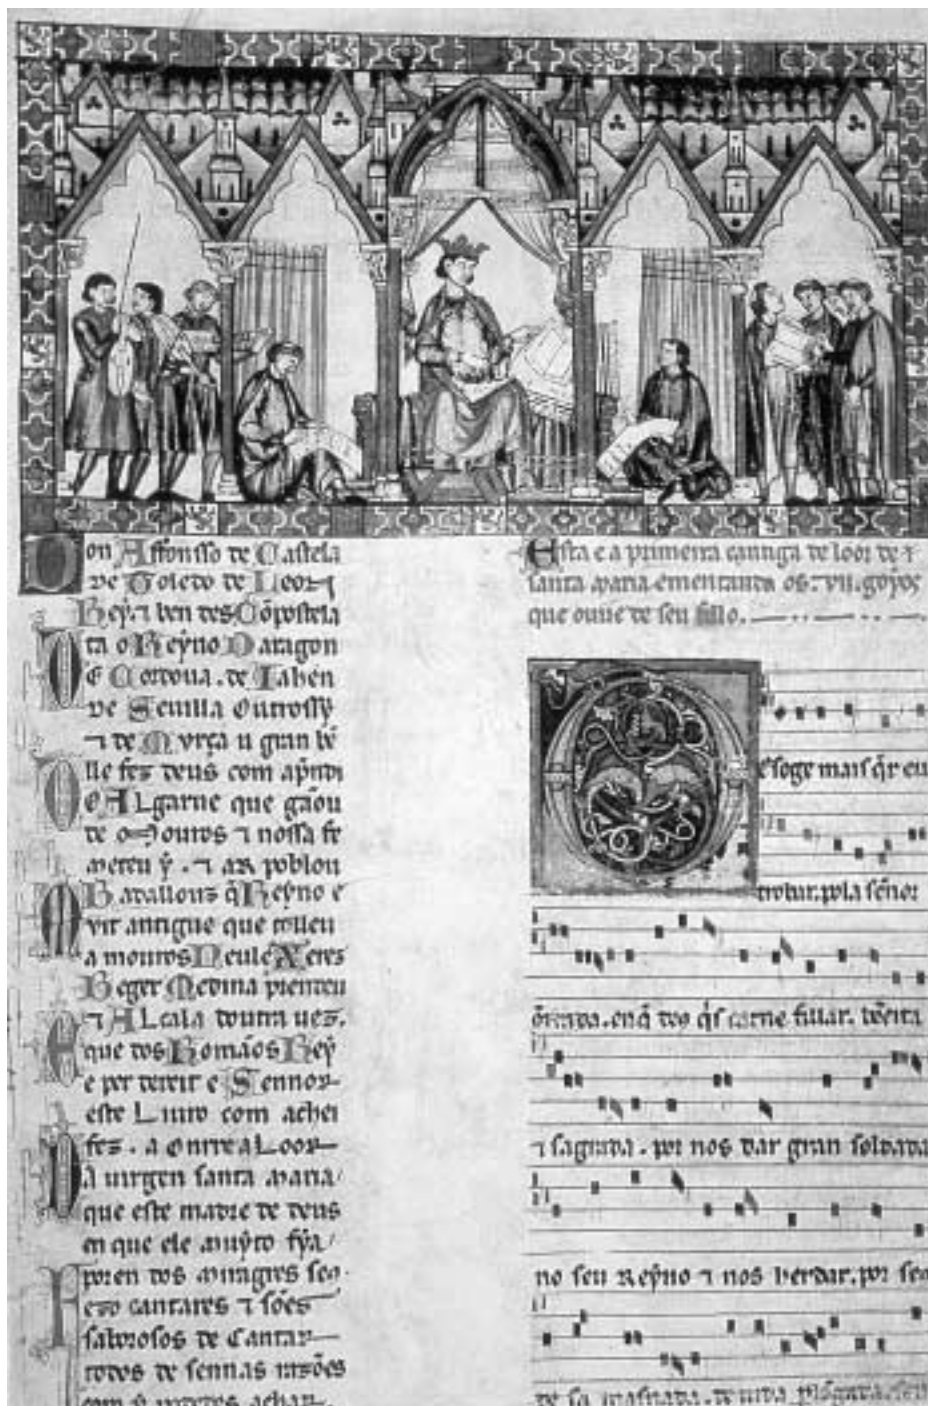 Don Affonsso de Castela
de Toledo de Leon
Rey. ⁊ ben des Cõpostela
ta o Reyno Daragon
De Cordoua. de Iahen
de Seuilla outrossy
⁊ de Murça u gran bẽ
lle fez deus com aprndi
o Algarue que gãou
de Mouros ⁊ nossa fe
meteu y. ⁊ ar poblou
Badallouz q̃ Reyno e
muit antigue que tolleu
a mouros Neul e Xerez
Beger Medina prendeu
⁊ Alcala doutra uez.
E que dos Romãos Rey
e per dereit e Sennor
este Liuro com achei
fez. a Onrr e a Loor
Da uirgen santa maria
que este madre de deus
en que ele muyto fya
Poren dos miragres seus
fezo cantares ⁊ sões
saborosos de Cantar
todos de sennas razões
com y podedes achar.
Esta e a primeira cantiga de loor de
santa maria ementando os. vii. goyos
que ouue de seu fillo.
Des oge mais q̃r eu
trobar. pola sẽnor
õrrada. en q̃ deus q̃s carne fillar. bẽeita
⁊ sagrada. por nos dar gran soldada
no seu Reyno ⁊ nos herdar. por seus
de sa masnada. de uida plõgada. sen